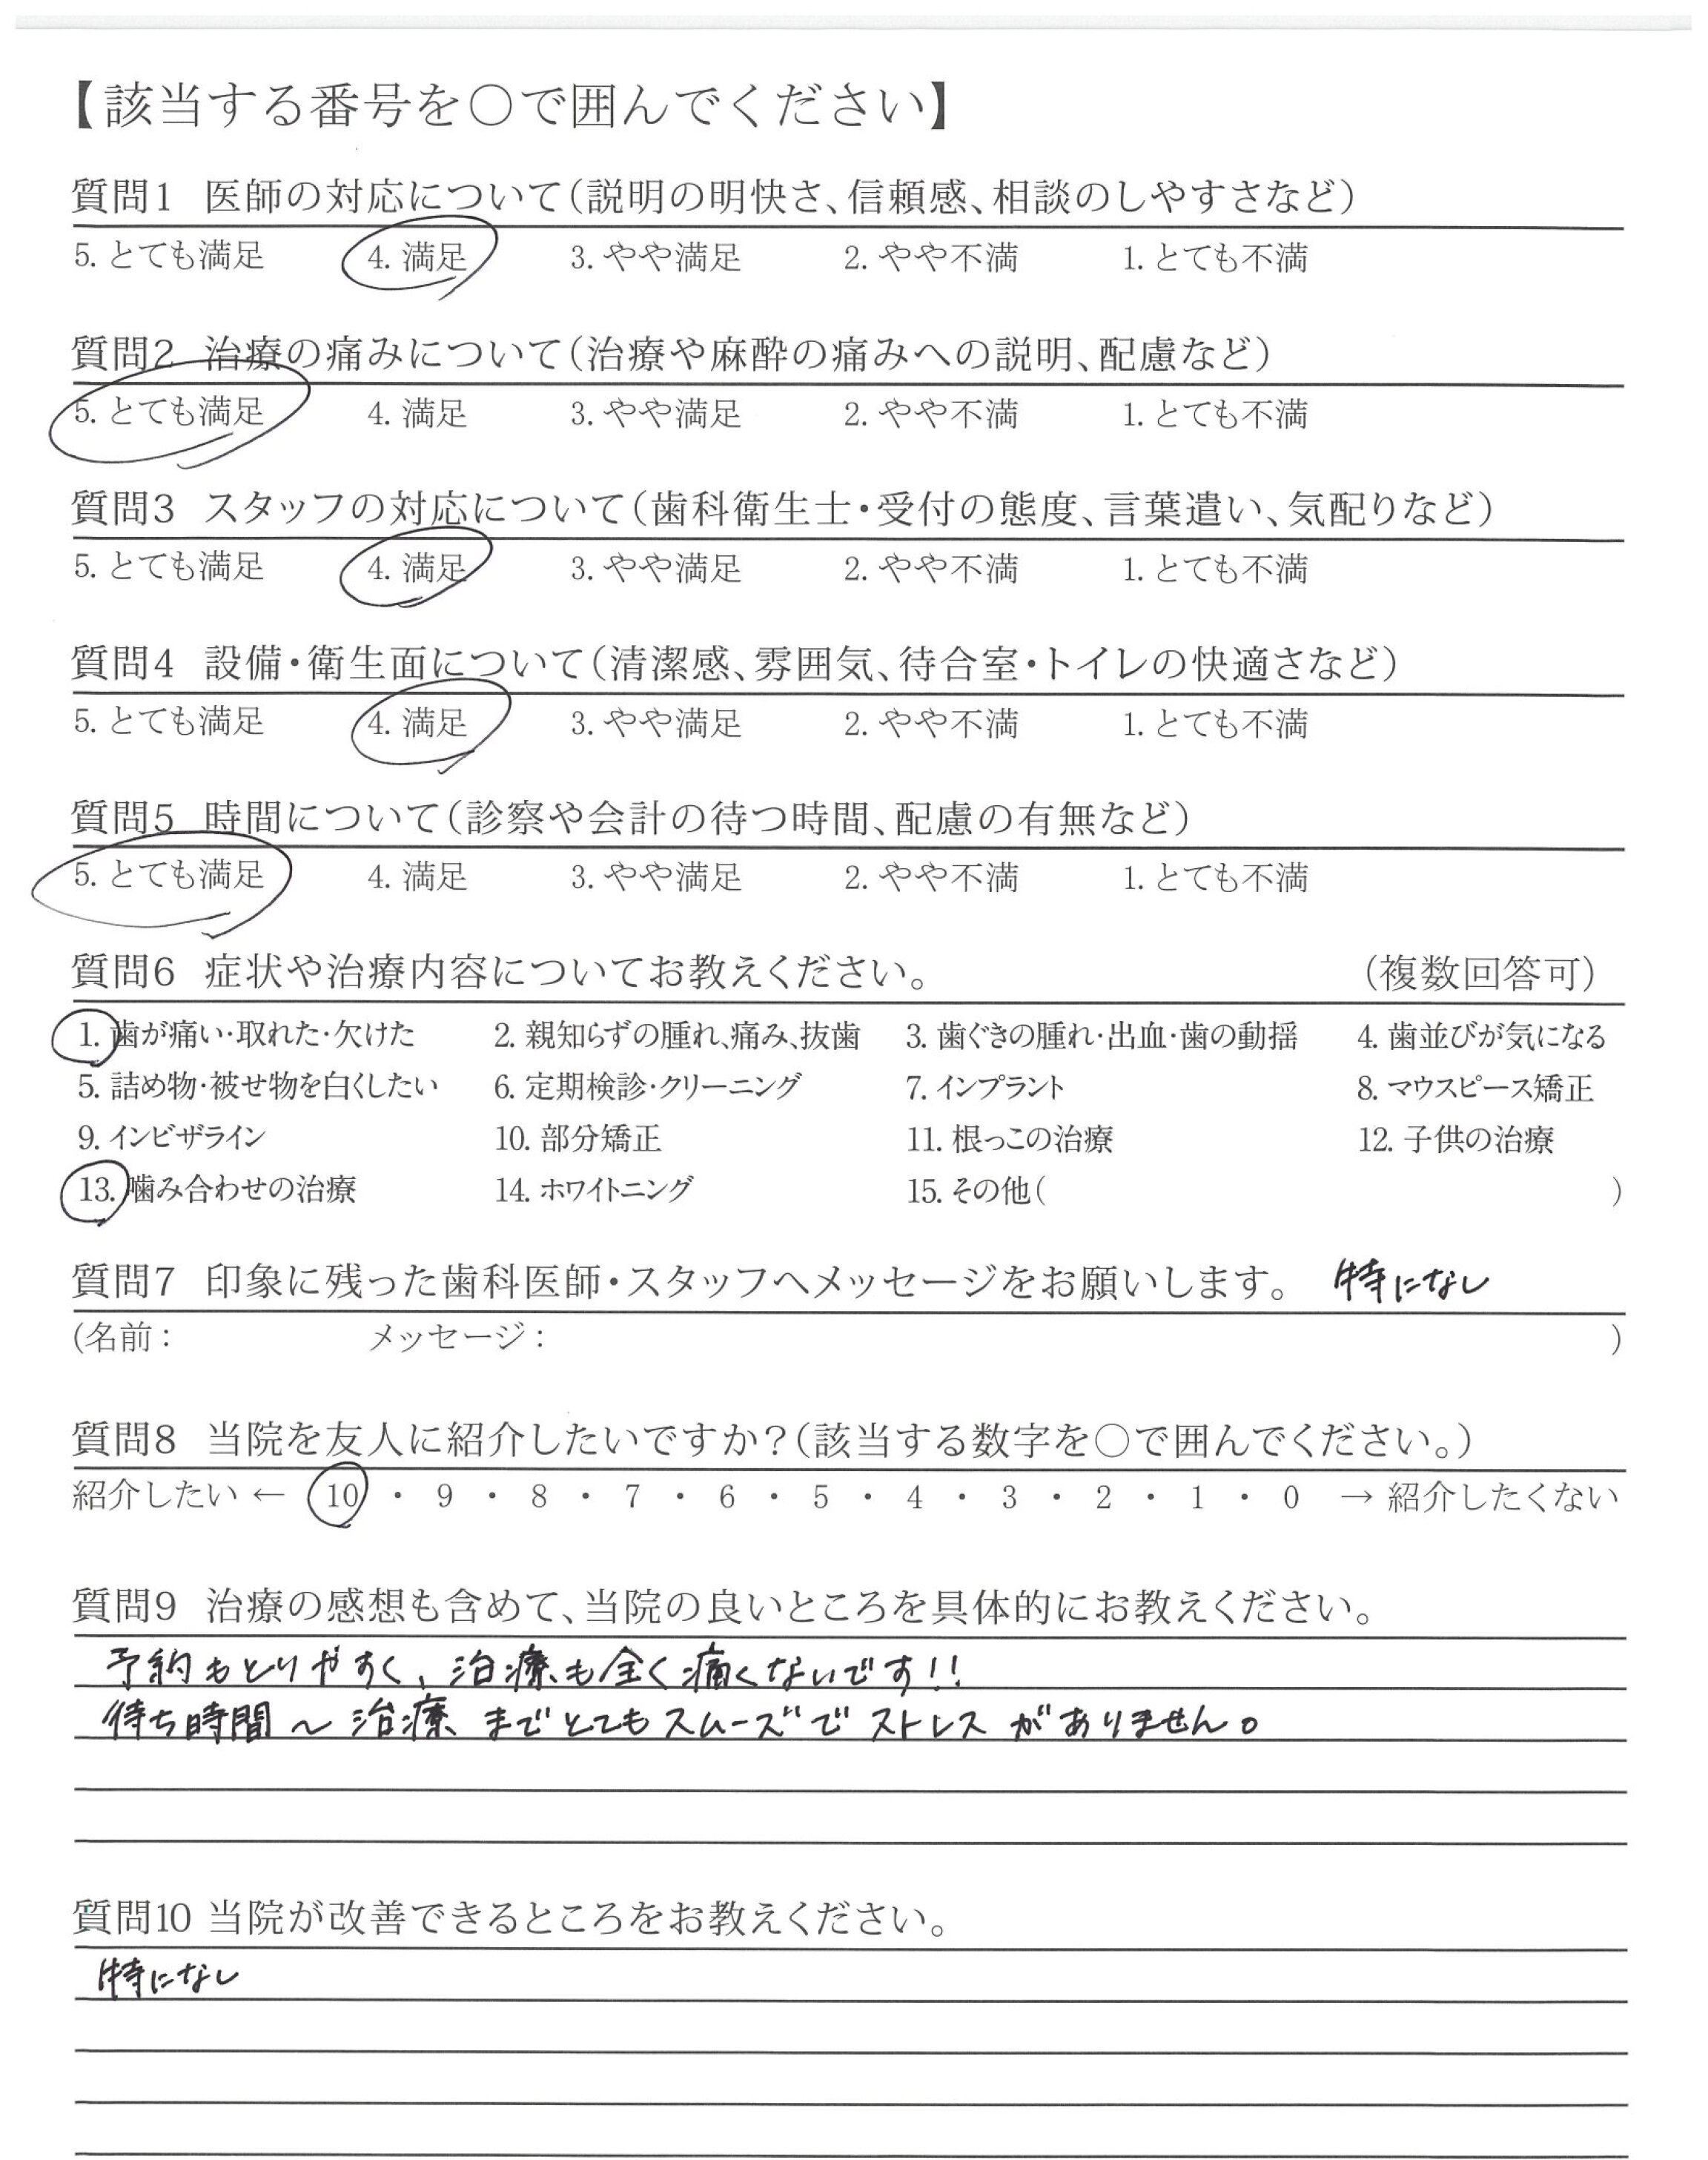 【該当する番号を○で囲んでください】
質問1 医師の対応について(説明の明快さ、信頼感、相談のしやすさなど)
5. とても満足 4. 満足 3. やや満足 2. やや不満 1. とても不満
質問2 治療の痛みについて(治療や麻酔の痛みへの説明、配慮など)
5. とても満足 4. 満足 3. やや満足 2. やや不満 1. とても不満
質問3 スタッフの対応について(歯科衛生士・受付の態度、言葉遣い、気配りなど)
5. とても満足 4. 満足 3. やや満足 2. やや不満 1. とても不満
質問4 設備・衛生面について(清潔感、雰囲気、待合室・トイレの快適さなど)
5. とても満足 4. 満足 3. やや満足 2. やや不満 1. とても不満
質問5 時間について(診察や会計の待つ時間、配慮の有無など)
5. とても満足 4. 満足 3. やや満足 2. やや不満 1. とても不満
質問6 症状や治療内容についてお教えください。 (複数回答可)
1. 歯が痛い・取れた・欠けた 2. 親知らずの腫れ、痛み、抜歯 3. 歯ぐきの腫れ・出血・歯の動揺 4. 歯並びが気になる
5. 詰め物・被せ物を白くしたい 6. 定期検診・クリーニング 7. インプラント 8. マウスピース矯正
9. インビザライン 10. 部分矯正 11. 根っこの治療 12. 子供の治療
13. 噛み合わせの治療 14. ホワイトニング 15. その他( )
質問7 印象に残った歯科医師・スタッフへメッセージをお願いします。 特になし
(名前: メッセージ: )
質問8 当院を友人に紹介したいですか?(該当する数字を○で囲んでください。)
紹介したい ← 10 ・ 9 ・ 8 ・ 7 ・ 6 ・ 5 ・ 4 ・ 3 ・ 2 ・ 1 ・ 0 → 紹介したくない
質問9 治療の感想も含めて、当院の良いところを具体的にお教えください。
予約もとりやすく、治療も全く痛くないです!!
待ち時間〜治療までとてもスムーズでストレスがありません。
質問10 当院が改善できるところをお教えください。
特になし